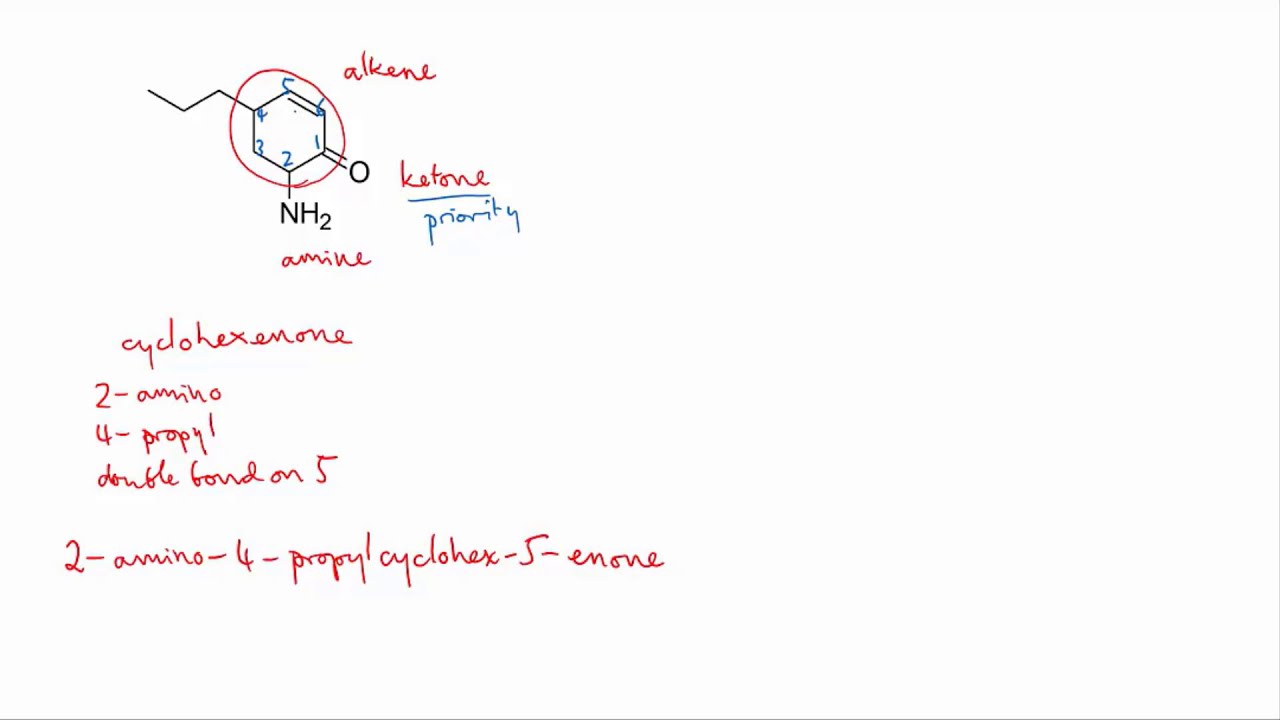 alkene
5
4 6
3 1
2
O
ketone
NH2
priority
amine
cyclohexenone
2-amino
4-propyl
double bond on 5
2-amino-4-propylcyclohex-5-enone